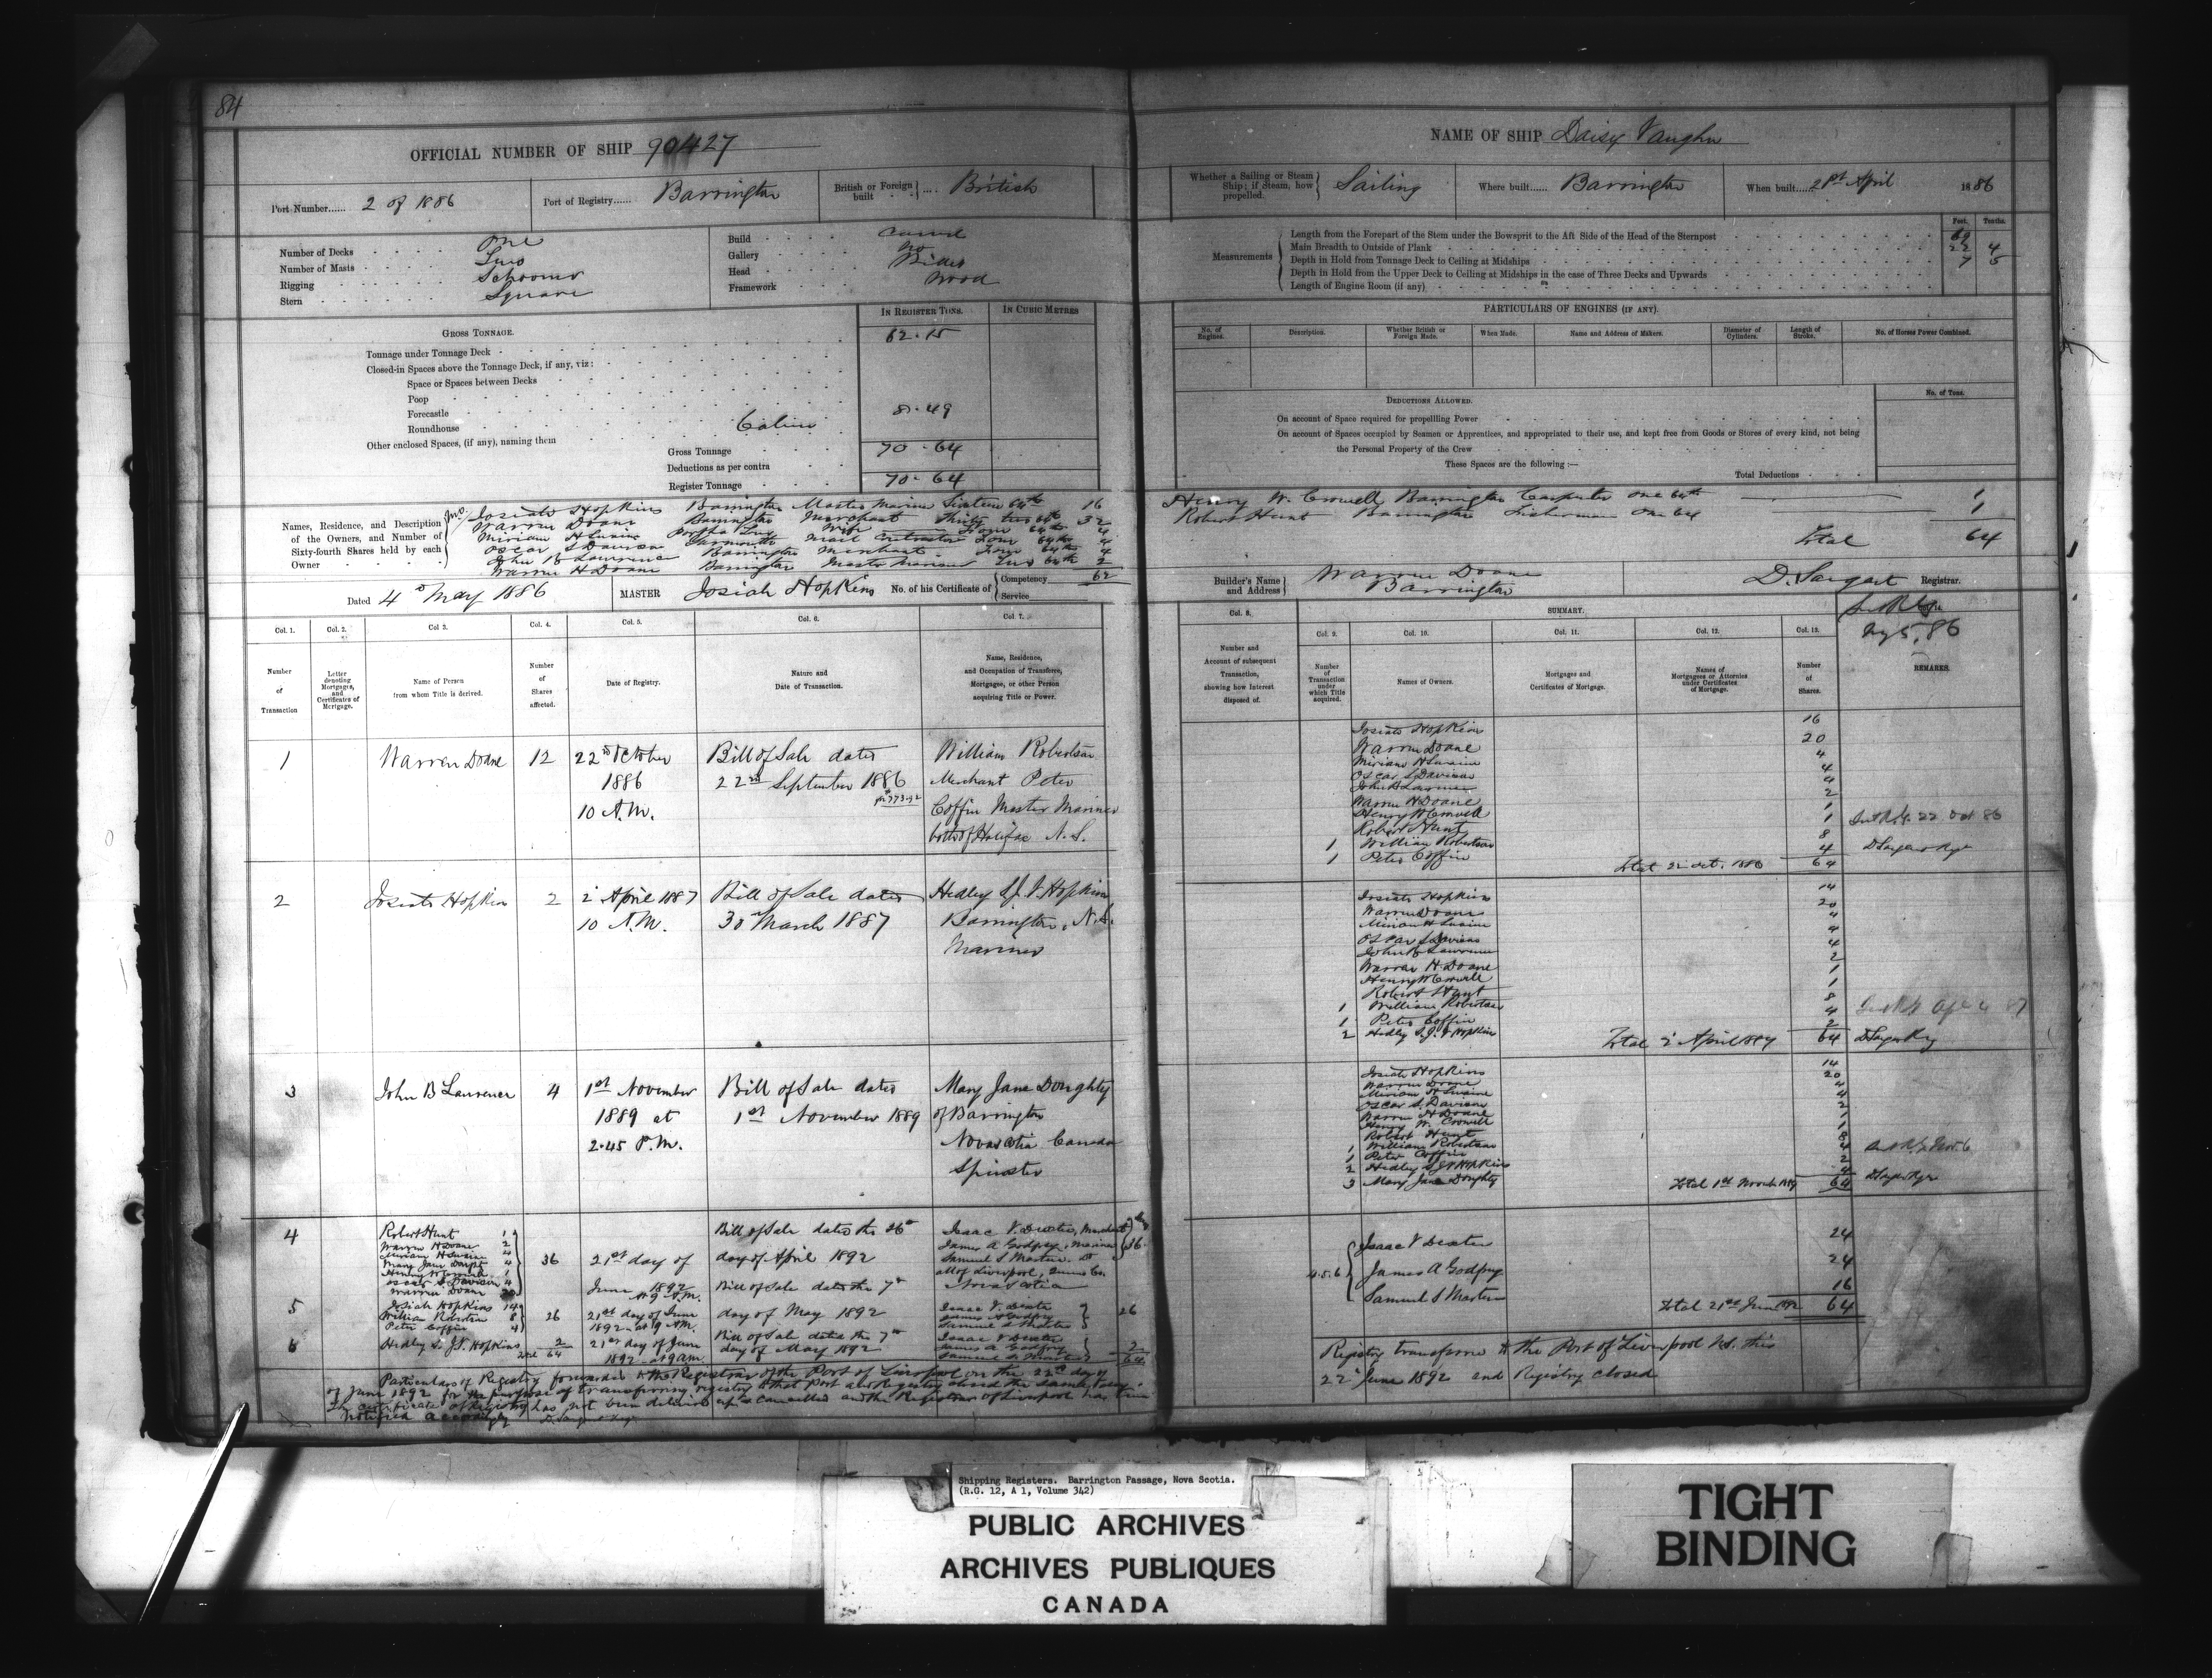 84
OFFICIAL NUMBER OF SHIP 90427
NAME OF SHIP Daisy Vaughn
Port Number...... 2 of 1886
Port of Registry...... Barrington
British or Foreign built .... British
Whether a Sailing or Steam Ship; if Steam, how propelled. Sailing
Where built...... Barrington
When built..... April 1886
Number of Decks One
Number of Masts Two
Rigging Schooner
Stern Square
Build Carvel
Gallery No
Head Billet
Framework Wood
Measurements
Feet. Tenths.
Length from the Forepart of the Stem under the Bowsprit to the Aft Side of the Head of the Sternpost
Main Breadth to Outside of Plank 22 4
Depth in Hold from Tonnage Deck to Ceiling at Midships 7 5
Depth in Hold from the Upper Deck to Ceiling at Midships in the case of Three Decks and Upwards
Length of Engine Room (if any)
GROSS TONNAGE.
IN REGISTER TONS. IN CUBIC METRES
Tonnage under Tonnage Deck 62.15
Closed-in Spaces above the Tonnage Deck, if any, viz:
Space or Spaces between Decks
Poop
Forecastle
Roundhouse
Other enclosed Spaces, (if any), naming them Cabin 8.49
Gross Tonnage 70.64
Deductions as per contra
Register Tonnage 70.64
PARTICULARS OF ENGINES (IF ANY).
No. of Engines. Description. Whether British or Foreign Made. When Made. Name and Address of Makers. Diameter of Cylinders. Length of Stroke. No. of Horses Power Combined.
DEDUCTIONS ALLOWED.
No. of Tons.
On account of Space required for propellling Power
On account of Spaces occupied by Seamen or Apprentices, and appropriated to their use, and kept free from Goods or Stores of every kind, not being
the Personal Property of the Crew
These Spaces are the following :—
Total Deductions
Names, Residence, and Description of the Owners, and Number of Sixty-fourth Shares held by each Owner
Josiah Hopkins Barrington Master Mariner Sixteen 64th 16
Warren Doane Barrington Merchant Thirty two 64th 32
Miriam H Swaine Wife Four 64th 4
Oscar S Davison Yarmouth Mail Contractor Four 64th 4
John B Lawrence Barrington Merchant Four 64th 4
Warren H Doane Barrington Master Mariner Two 64th 2
62
Henry W. Crowell Barrington Carpenter One 64th 1
Robert Hunt Barrington Fisherman One 64 1
Total 64
Dated 4th May 1886
MASTER Josiah Hopkins No. of his Certificate of Competency Service
Builder's Name and Address Warren Doane Barrington
D. Sargent Registrar.
Col. 1. Col. 2. Col 3. Col. 4. Col. 5. Col. 6. Col. 7.
Number of Transaction
Letter denoting Mortgages, and Certificates of Mortgage.
Name of Person from whom Title is derived.
Number of Shares affected.
Date of Registry.
Nature and Date of Transaction.
Name, Residence, and Occupation of Transferee, Mortgagee, or other Person acquiring Title or Power.
Col. 8.
Number and Account of subsequent Transaction, showing how Interest disposed of.
SUMMARY.
Col. 9. Col. 10. Col. 11. Col. 12. Col. 13.
Number of Transaction under which Title acquired.
Names of Owners.
Mortgages and Certificates of Mortgage.
Names of Mortgagees or Attornies under Certificates of Mortgage.
Number of Shares.
REMARKS.
1 Warren Doane 12 22nd October 1886 10 A.M.
Bill of Sale dated 22nd September 1886
William Robertson
Merchant Peter
Coffin Master Mariner
both of Halifax N.S.
Josiah Hopkins 16
Warren Doane 20
Miriam H Swaine 4
Oscar S Davison 4
John B Lawrence 4
Warren H Doane 2
Henry W Crowell 1
Robert Hunt 1
1 William Robertson 8
1 Peter Coffin 4
Total 22 Oct. 1886 64
2 Josiah Hopkins 2 2nd April 1887 10 A.M.
Bill of Sale dated 30th March 1887
Hedley S.J.V. Hopkins
Barrington, N.S.
Mariner
Josiah Hopkins 14
Warren Doane 20
Miriam H Swaine 4
Oscar S Davison 4
John B Lawrence 4
Warren H Doane 2
Henry W Crowell 1
Robert Hunt 1
1 William Robertson 8
1 Peter Coffin 4
2 Hedley S.J.V Hopkins 2
Total 2 April 1887 64
3 John B Lawrence 4 1st November 1889 at 2.45 P.M.
Bill of Sale dated 1st November 1889
Mary Jane Doughty
of Barrington
Nova Scotia Canada
Spinster
Josiah Hopkins 14
Warren Doane 20
Miriam H Swaine 4
Oscar S. Davison 4
Warren H Doane 2
Henry W. Crowell 1
Robert Hunt 1
1 William Robertson 8
1 Peter Coffin 4
2 Hedley S.J.V Hopkins 2
3 Mary Jane Doughty 4
Total 1st Novemb 1889 64
4 Robert Hunt 1
Warren H Doane 2
Miriam H Swaine 4
Mary Jane 4
Henry W Crowell 1
Oscar S Davison 4
Warren Doane 20
36 21st day of June 1892 at 9 A.M.
Bill of Sale dated the 26th day of April 1892
Isaac V. Dexter, Merchant
James A Godfrey, Mariner
Samuel S Masters
all of Liverpool, Queens Co.
Nova Scotia
36
5 Josiah Hopkins 14
William Robertson 8
Peter Coffin 4
26 21st day of June 1892 at 9 A.M.
Bill of Sale dated the 7th day of May 1892
Isaac V. Dexter
James A Godfrey
Samuel S Masters
26
6 Hedley S. J.V. Hopkins 2
Total 64
21st day of June 1892 at 9 am
Bill of Sale dated the 7th day of May 1892
Isaac V Dexter
James A Godfrey
Samuel S Masters
2
64
4.5.6
Isaac V Dexter 24
James A Godfrey 24
Samuel S Masters 16
Total 21st June 1892 64
Particulars of Registry forwarded to the Registrar of the Port of Liverpool on the 22nd day
of June 1892 for the purpose of transferring registry to that Port and Registry closed the same day.
The certificate of Registry has not been delivered up & cancelled and the Registrar of Liverpool has been
notified accordingly D. Sargent
Registry transferred to the Port of Liverpool N.S. this
22nd June 1892 and Registry closed
Shipping Registers. Barrington Passage, Nova Scotia.
(R.G. 12, A 1, Volume 342)
PUBLIC ARCHIVES
ARCHIVES PUBLIQUES
CANADA
TIGHT
BINDING